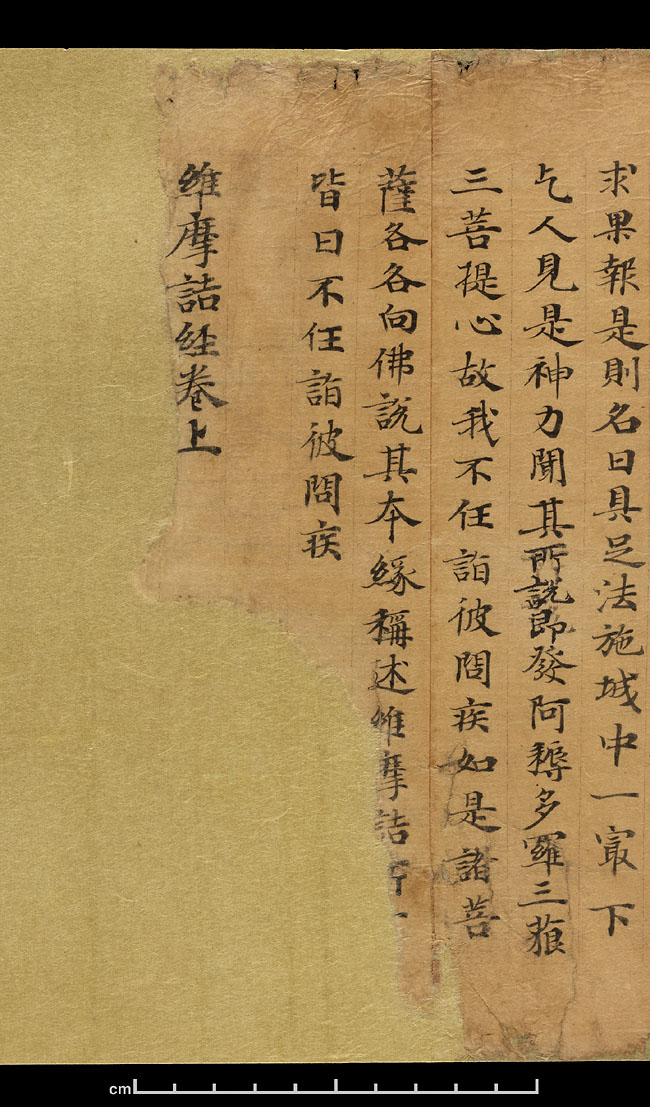 求果報是則名曰具足法施城中一寂下
乞人見是神力聞其所説即發阿耨多羅三藐
三菩提心故我不任詣彼問疾如是諸菩
薩各各向佛說其本緣稱述維摩詰所
皆曰不任詣彼問疾
維摩詰經卷上
cm